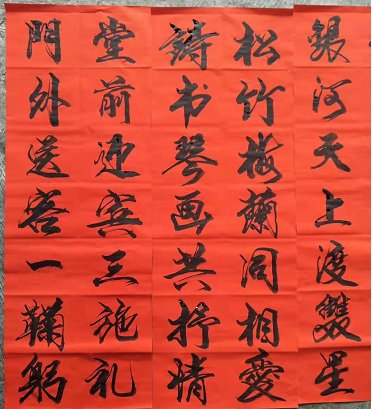 銀河天上渡雙星
松竹梅蘭同相愛
詩书琴画共抒情
堂前迎賓三施礼
門外送客一鞠躬